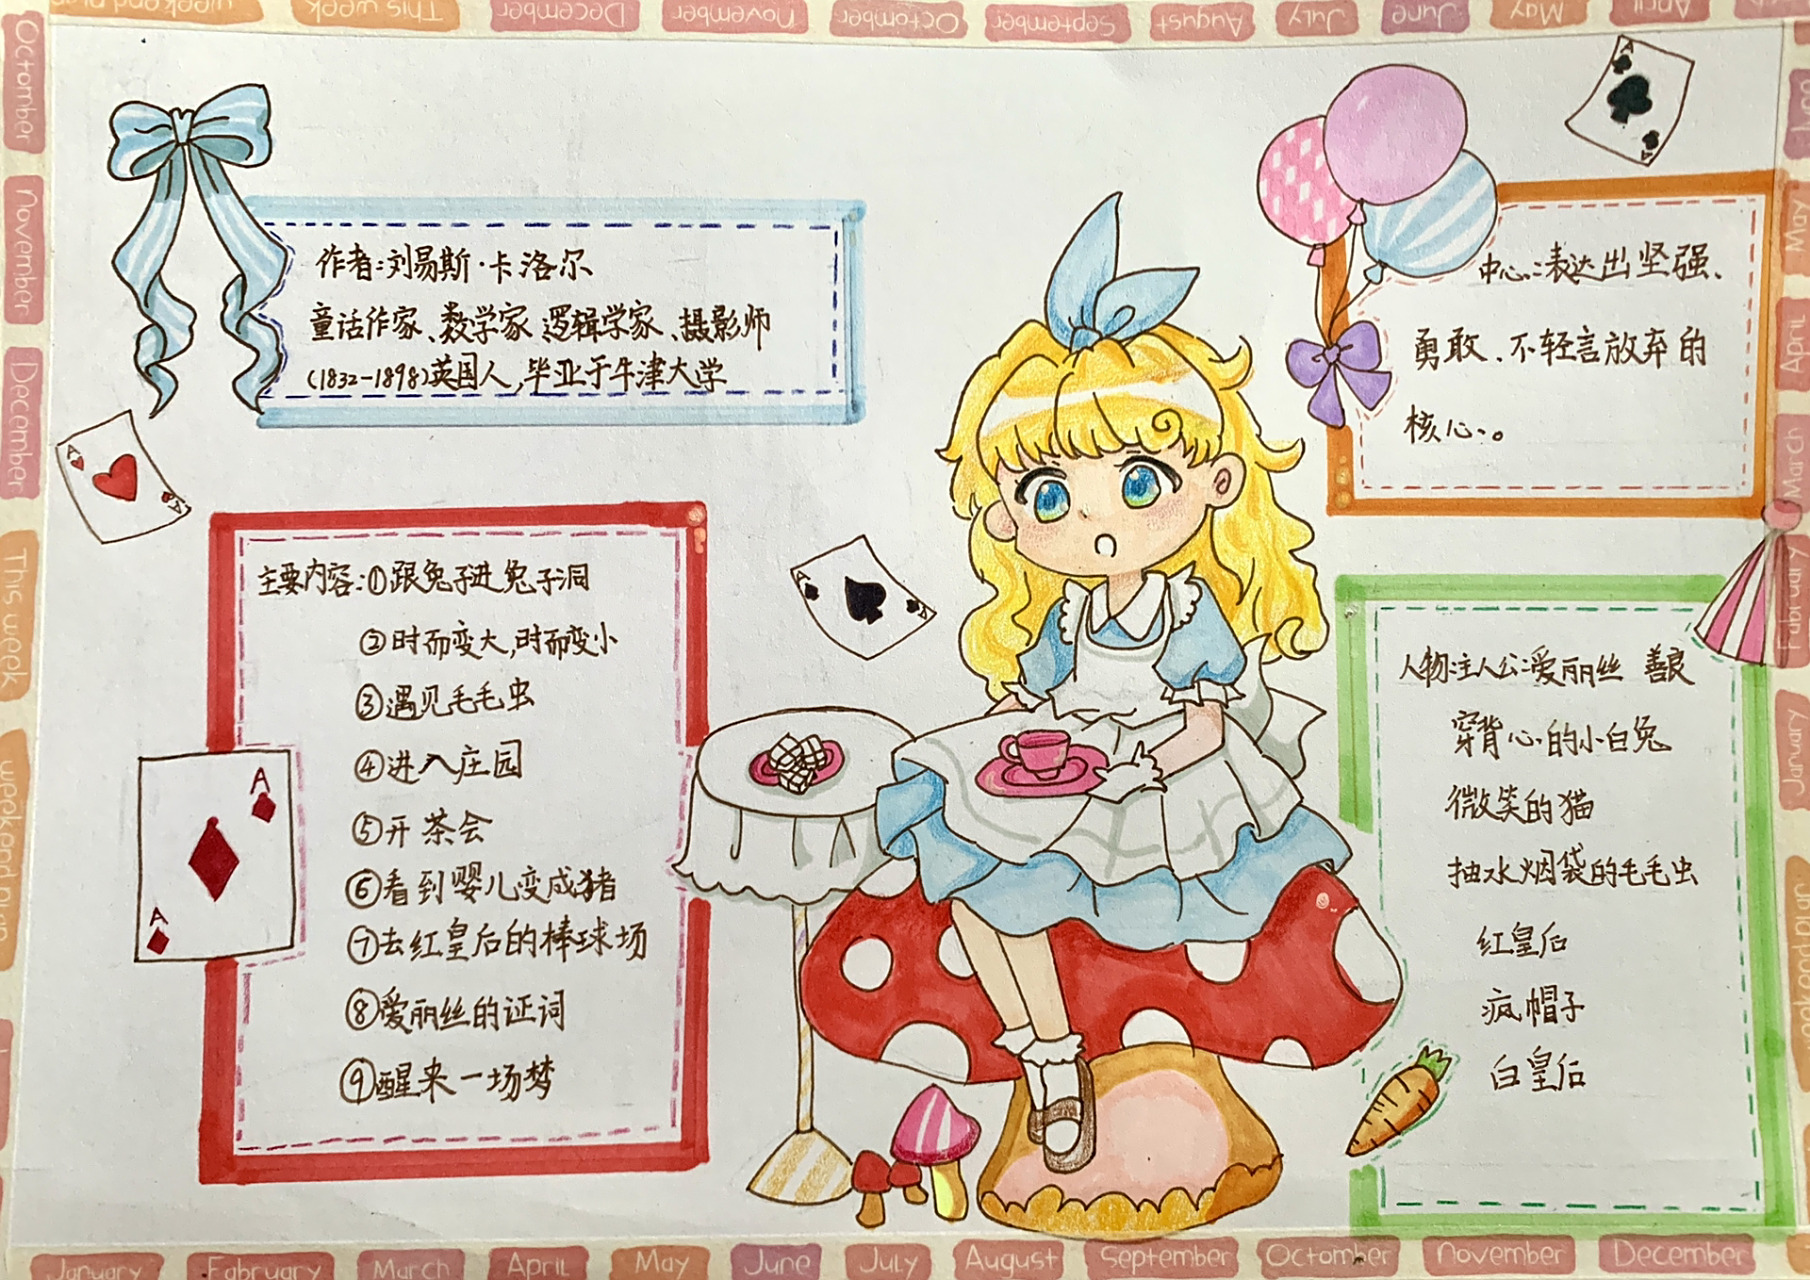 weekend plan
This week
December
November
Octomber
September
August
July
June
May
April
Octomber
November
December
This week
weekend plan
作者:刘易斯·卡洛尔
童话作家、数学家 逻辑学家、摄影师
(1832-1898)英国人,毕业于牛津大学
A
A
A
A
中心:表达出坚强、
勇敢、不轻言放弃的
核心。
A
A
主要内容:①跟兔子进兔子洞
②时而变大,时而变小
③遇见毛毛虫
④进入庄园
⑤开茶会
⑥看到婴儿变成猪
⑦去红皇后的棒球场
⑧爱丽丝的证词
⑨醒来一场梦
A
A
人物:主人公:爱丽丝 善良
穿背心的小白兔
微笑的猫
抽水烟袋的毛毛虫
红皇后
疯帽子
白皇后
May
April
March
Fubruary
January
weekend plan
January
Fabruary
March
April
May
June
July
August
September
Octomber
November
December